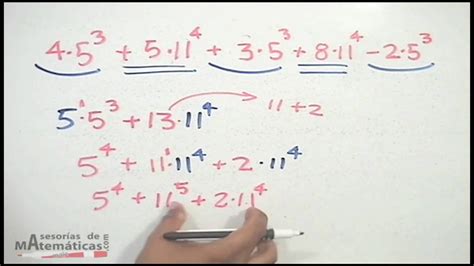 4·5³ + 5·11⁴ + 3·5³ + 8·11⁴ − 2·5³
5¹·5³ + 13·11⁴ → 11 + 2
5⁴ + 11¹·11⁴ + 2·11⁴
5⁴ + 11⁵ + 2·11⁴
Asesorías de
Matemáticas.com